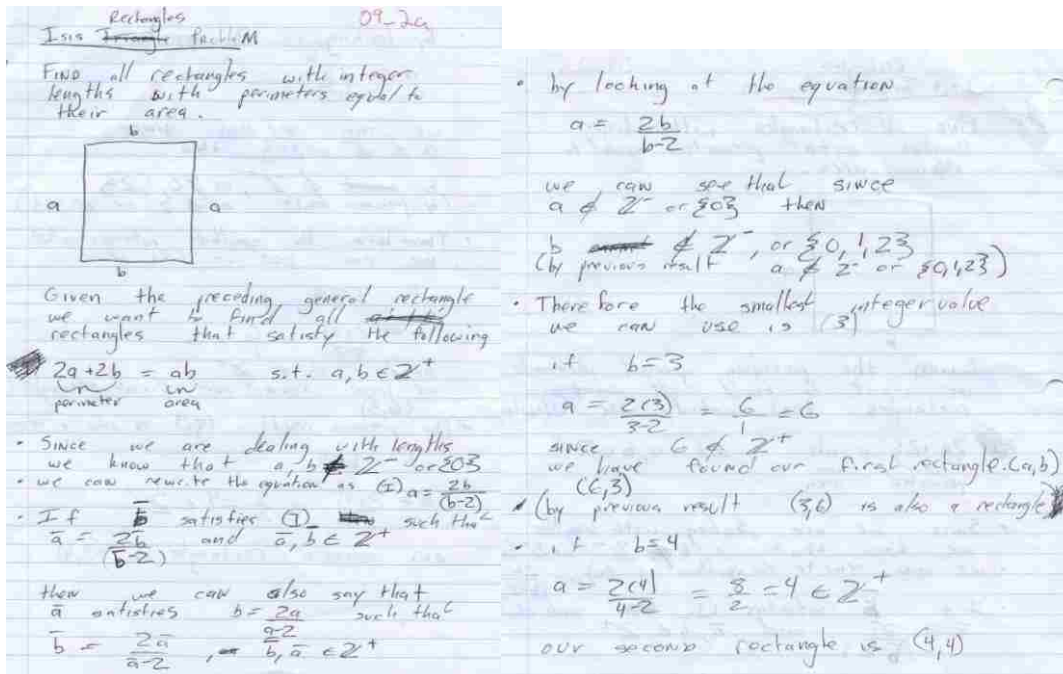 Rectangles
Isis Problem
09-2a
Find all rectangles with integer
lengths with perimeters equal to
their area.
b
a a
b
Given the preceding, general rectangle
we want to find all
rectangles that satisfy the following
2a+2b = ab s.t. a, b ∈ Z⁺
perimeter area
• Since we are dealing with lengths
we know that a, b ∉ Z⁻ or {0}
• we can rewrite the equation as (I) a = 2b/(b-2)
• If b̄ satisfies (I) such that
ā = 2b̄/(b̄-2) and ā, b̄ ∈ Z⁺
then we can also say that
ā satisfies b = 2a/(a-2) such that
b̄ = 2ā/(ā-2), b̄, ā ∈ Z⁺
• by looking at the equation
a = 2b/(b-2)
we can see that since
a ∉ Z⁻ or {0} then
b ∉ Z⁻, or {0,1,2}
(by previous result a ∉ Z⁻ or {0,1,2})
• Therefore the smallest integer value
we can use is (3)
if b=3
a = 2(3)/(3-2) = 6/1 = 6
since 6 ∉ Z⁺
we have found our first rectangle. (a,b)
(6,3)
(by previous result (3,6) is also a rectangle)
• if b=4
a = 2(4)/(4-2) = 8/2 = 4 ∈ Z⁺
our second rectangle is (4,4)